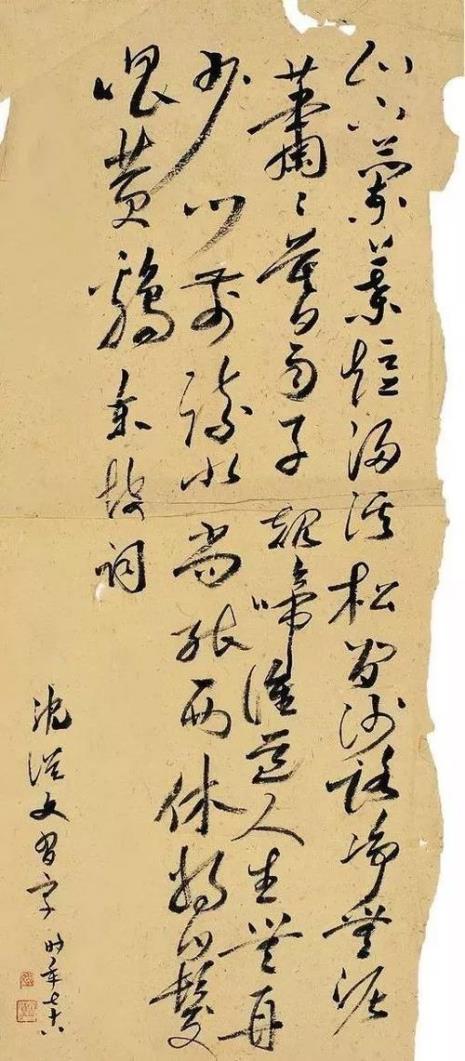 山下蘭葉短浸溪松間沙路淨無泥
蕭〻暮雨子規啼誰道人生無再
少門前流水尚能西休將白髮
唱黄鷄東坡詞
沈從文習字 时年七十八